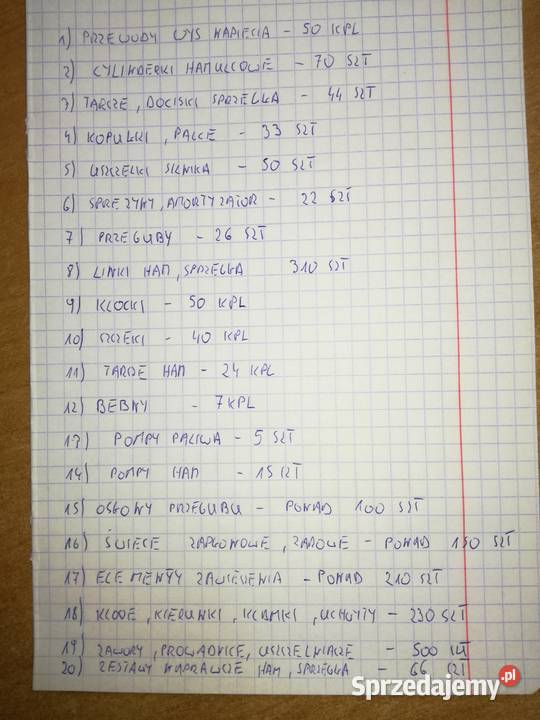 1) PRZEWODY WYS NAPIECIA - 50 KPL
2) CYLINDERKI HAMULCOWE - 70 SZT
3) TARCZE, DOCISKI SPRZEGLA - 44 SZT
4) KOPULKI, PALCE - 33 SZT
5) USZCZELKI SILNIKA - 50 SZT
6) SPREZYNY, AMORTYZATOR - 22 SZT
7) PRZEGUBY - 26 SZT
8) LINKI HAM, SPRZEGLA 310 SZT
9) KLOCKI - 50 KPL
10) SZCZEKI - 40 KPL
11) TARCZE HAM - 24 KPL
12) BEBNY - 7 KPL
13) POMPY PALIWA - 5 SZT
14) POMPY HAM - 15 SZT
15) OSLONY PRZEGUBU - PONAD 100 SZT
16) ŚWIECE ZAPLONOWE, ZAROWE - PONAD SZT
17) ELEMENTY ZAWIESZENIA - PONAD 210 SZT
18) KLODE, KIERUNKI, KLAMKI, UCHWYTY - 230 SZT
19) ZAWORY, PROWADNICE, USZCZELNIACZE - 500 SZT
20) ZESTAWY NAPRAWCZE HAM, SPRZEGLA - 66 SZT
Sprzedajemy.pl